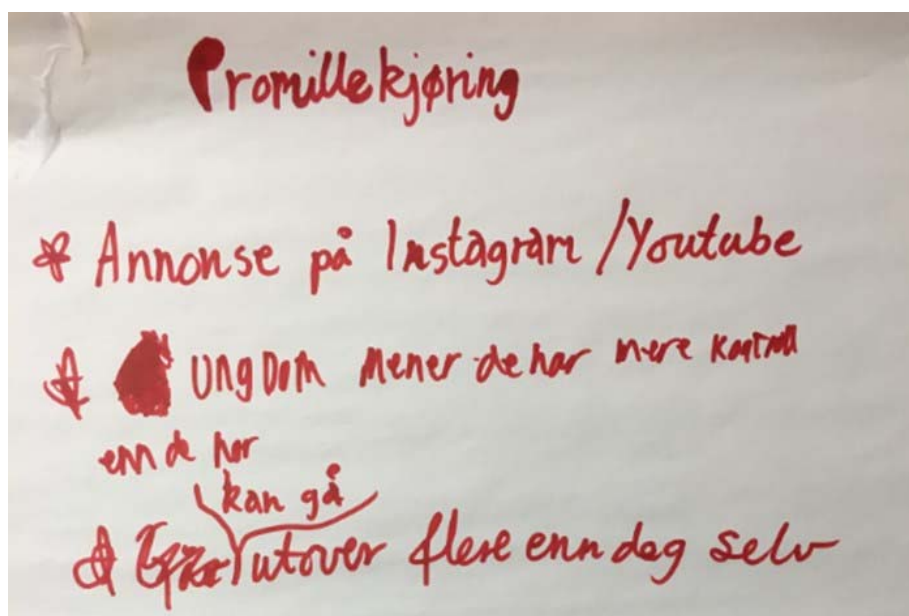 Promillekjøring
* Annonse på Instagram / Youtube
* UNgDom Mener de har mere kontroll
enn de har
kan gå
* utover flere enn deg selv